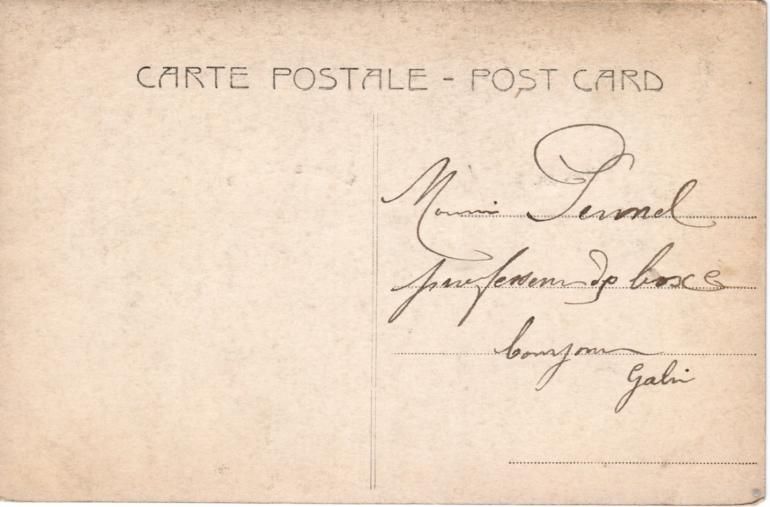 CARTE POSTALE - POST CARD
Pernel
professeur de boxe
bonjour
Gabi